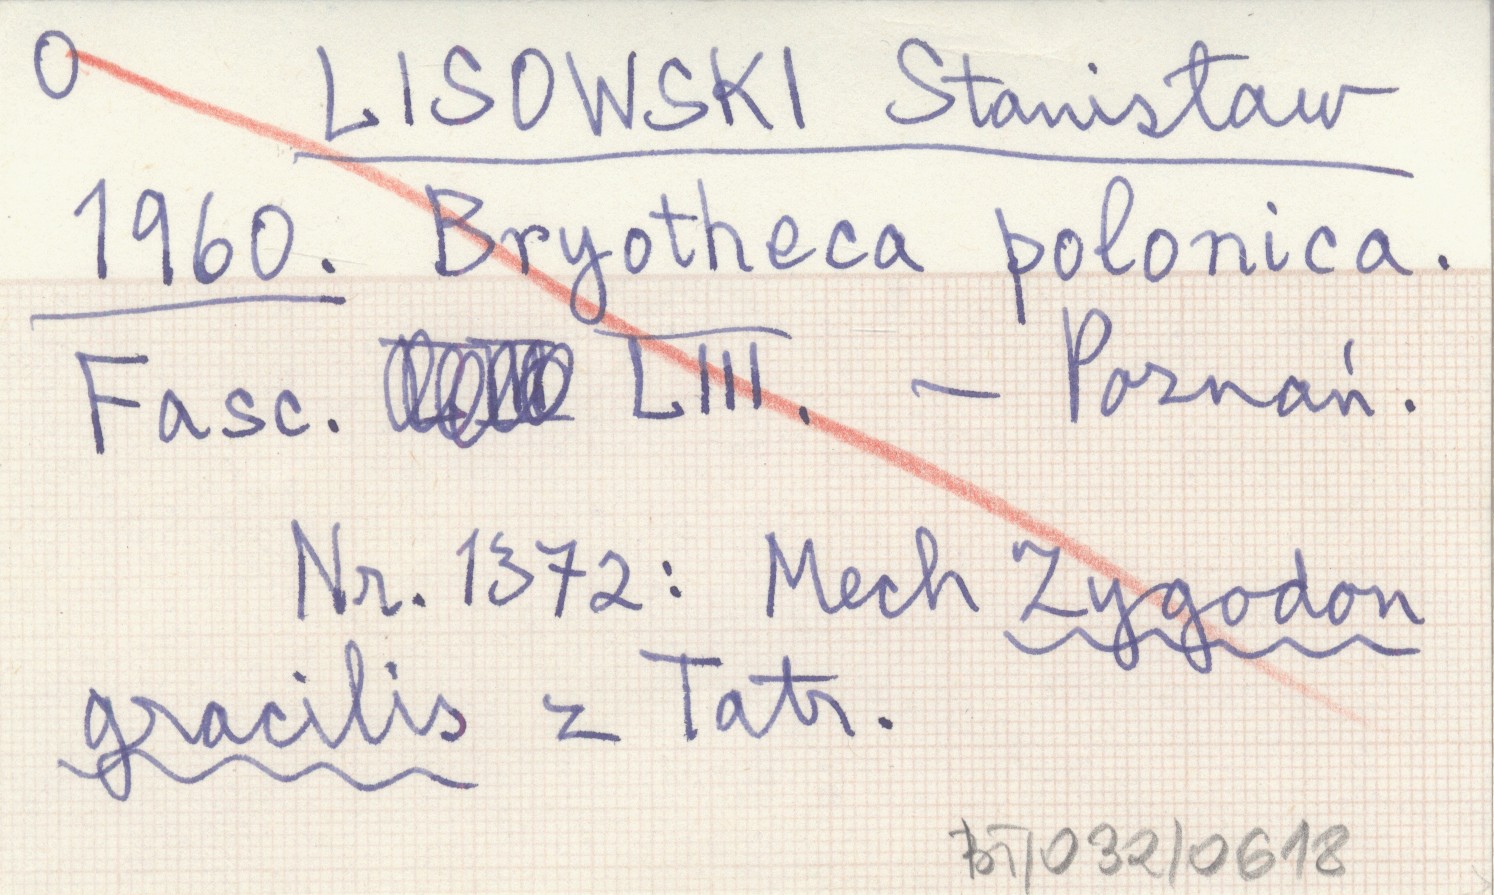 O LISOWSKI Stanisław
1960. Bryotheca polonica.
Fasc. LIII. – Poznań.
Nr. 1372: Mech Zygodon
gracilis z Tatr.
BT/032/0618